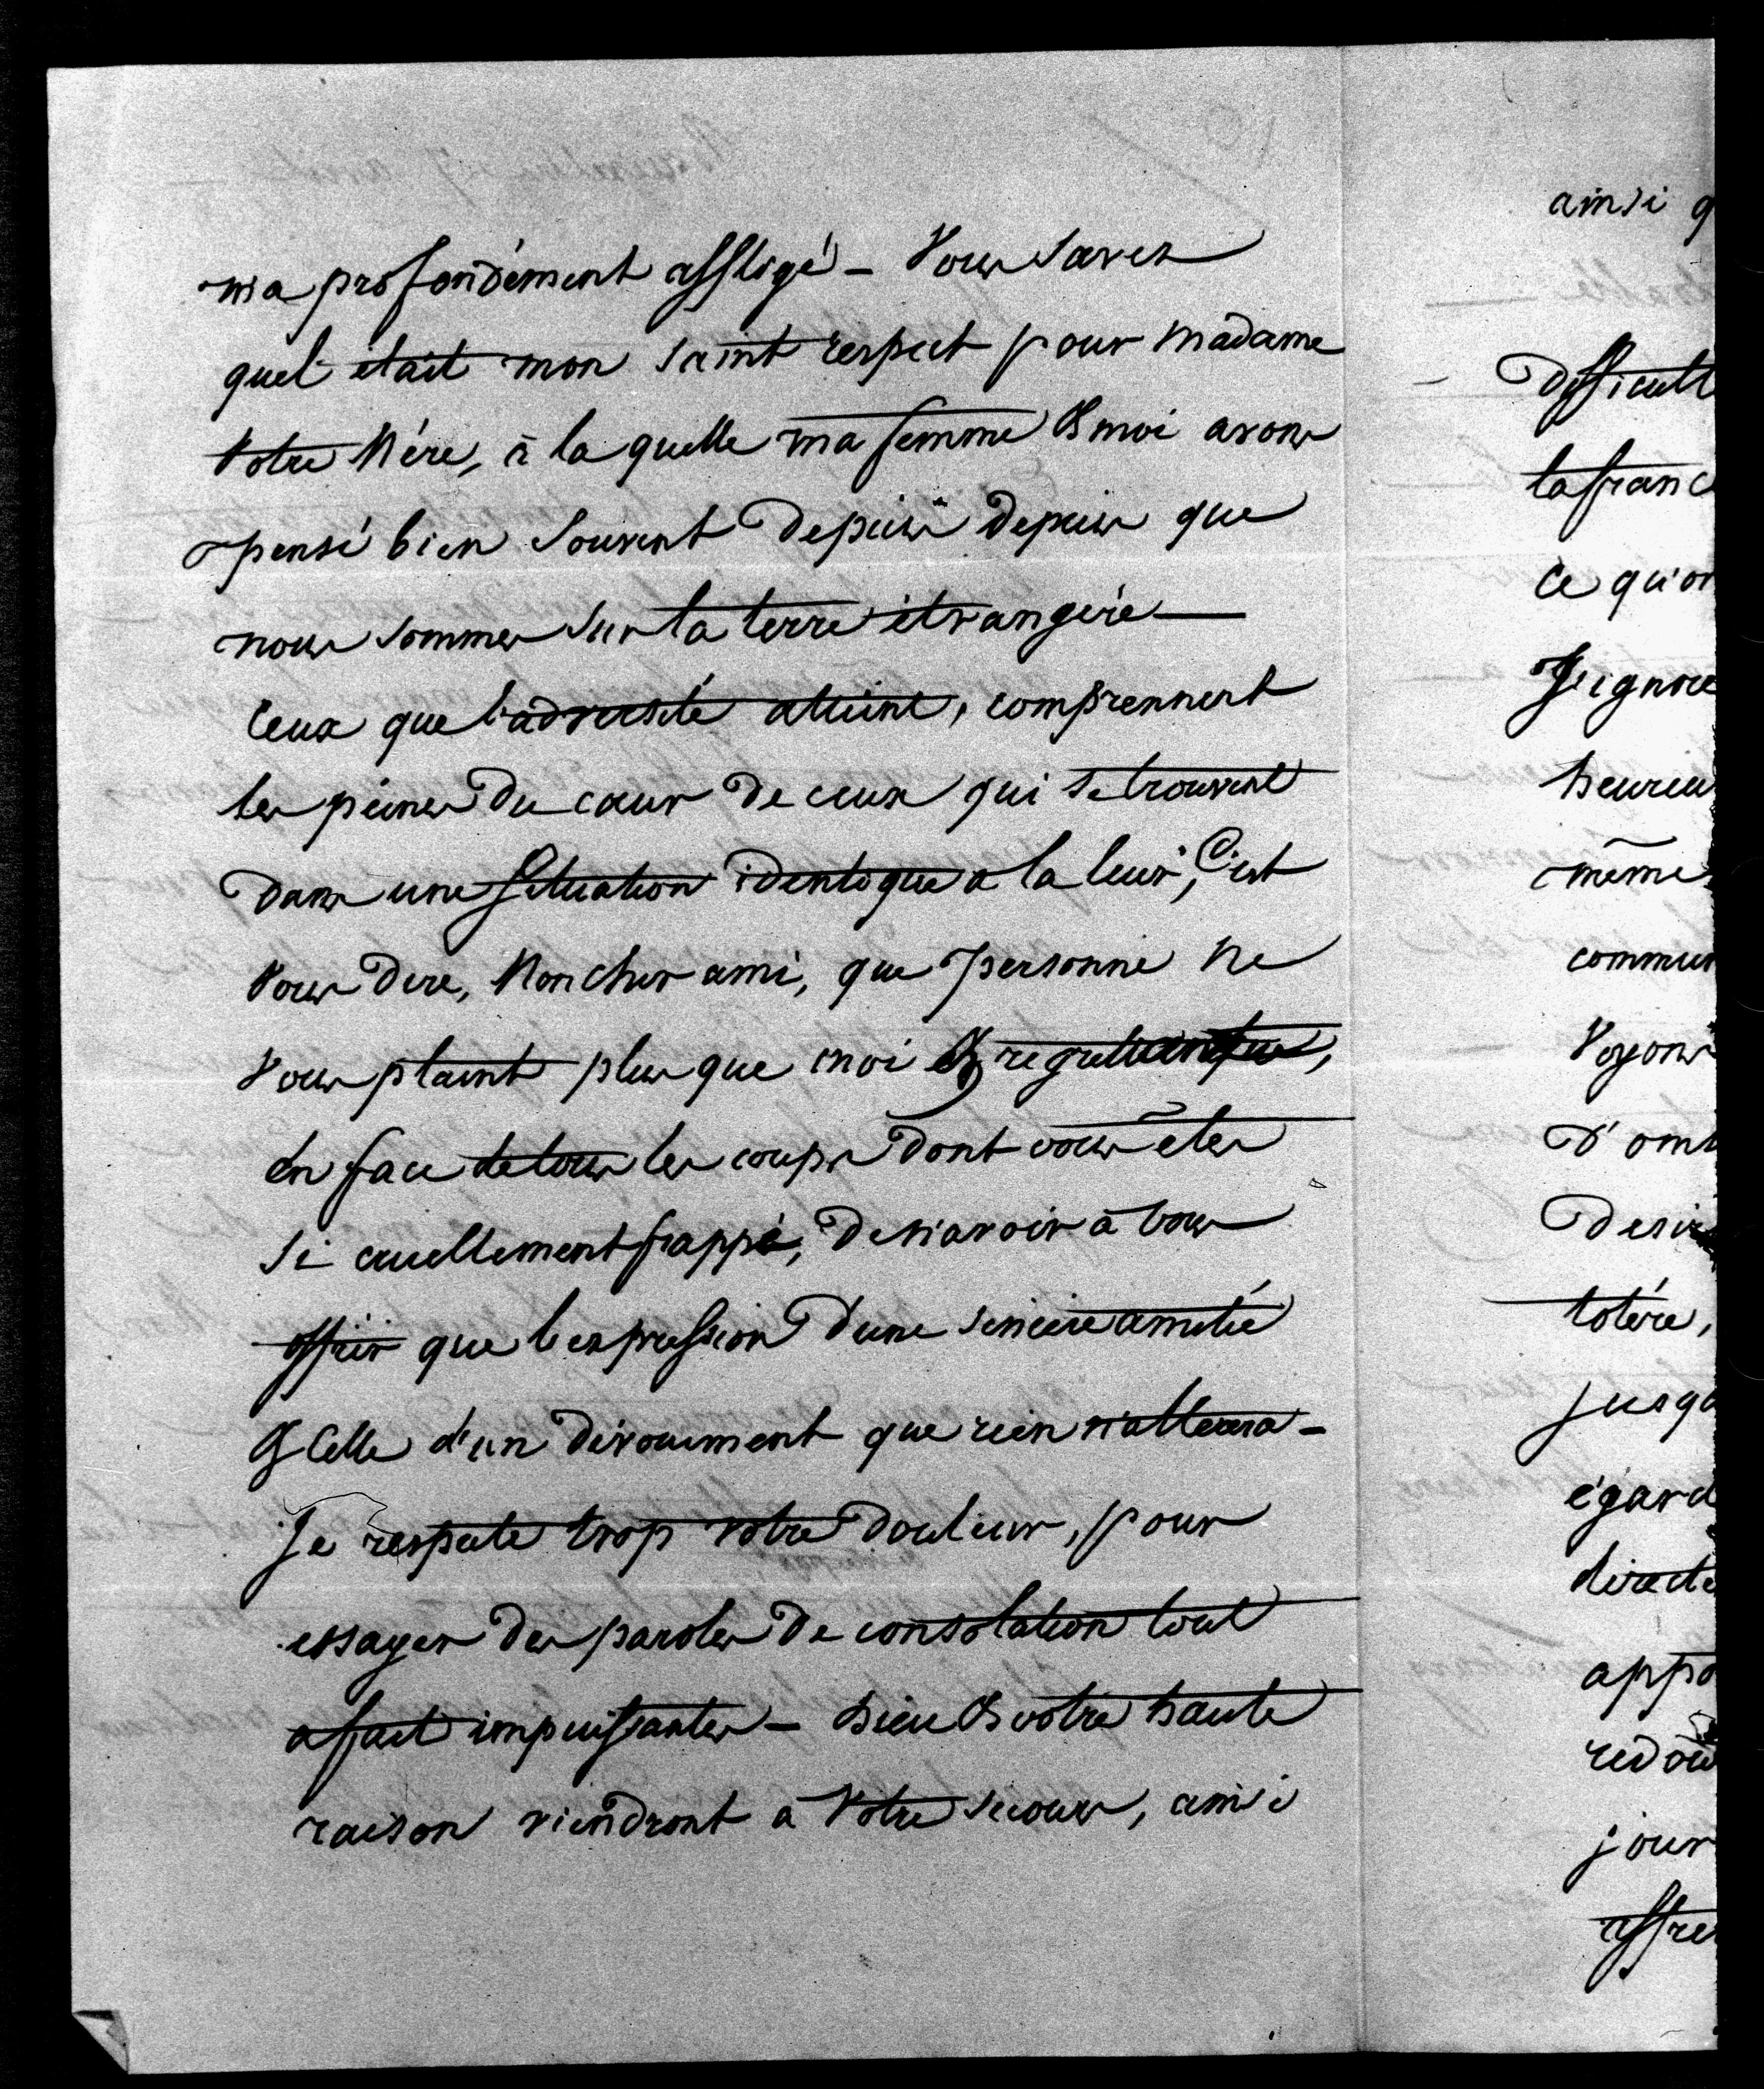 ma profondément affligé – Vous savez
quel était mon saint respect pour Madame
Votre Mère, à la quelle ma femme & moi avons
pensé bien souvent depuis depuis que
nous sommes sur la terre étrangère —
Ceux que l'adversité atteint, comprennent
les peines du cœur de ceux qui se trouvent
dans une situation identique a la leur, C'est
vous dire, Mon cher ami, que personne ne
vous plaint plus que moi & regrette
en face de tous les coups dont vous êtes
si cruellement frappé, de n'avoir à vous
offrir que l'expression d'une sincère amitié
& Celle d'un dévouement que rien n'altèrera –
Je respecte trop votre douleur, pour
essayer des paroles de consolation tout
a fait impuissantes – Dieu & votre haute
raison viendront a Votre secours, ainsi
ainsi q
difficult
la franc
Ce qu'on
J'ignore
heureu
même
commun
Voyons
D'om
Desir
tolére,
jusqu
égard
directe
appo
redou
jour